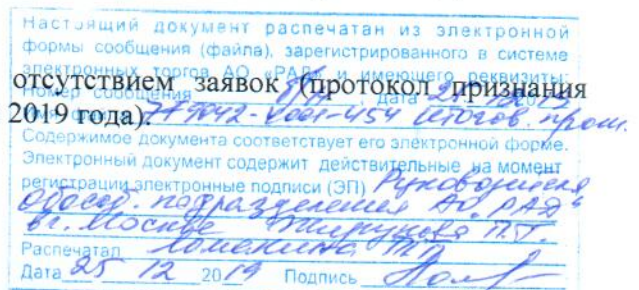 Настоящий документ распечатан из электронной
формы сообщения (файла), зарегистрированного в системе
электронных торгов АО «РАД» и имеющего реквизиты:
отсутствием заявок (протокол признания
Номер сообщения дата 25
2019 года).
Содержимое документа соответствует его электронной форме.
Электронный документ содержит действительные на момент
регистрации электронные подписи (ЭП) Руководителя
обособ. подразделения АО "РАД"
в г. Москве П.Г.
Распечатал
Дата 25 12 2019 Подпись